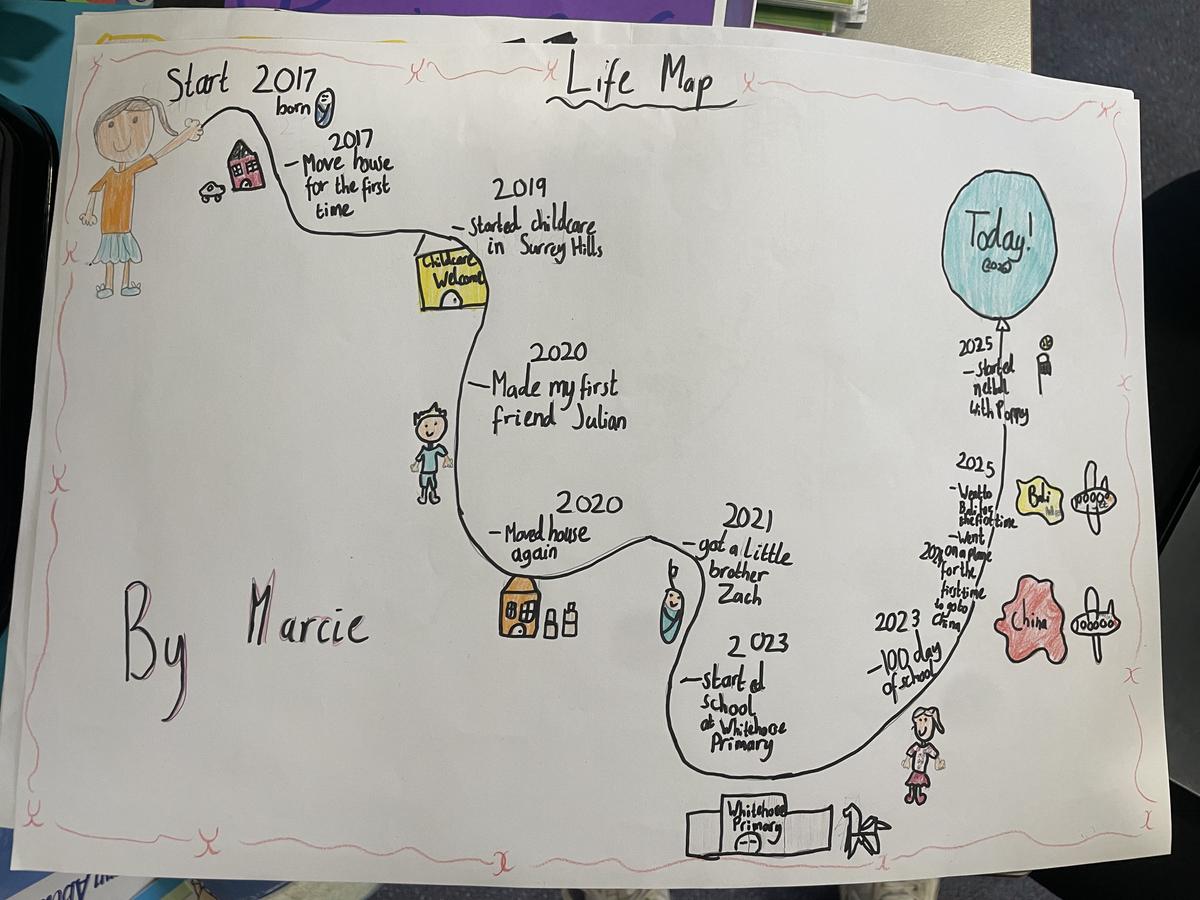 Life Map
Start 2017
born
2017
- Move house
for the first
time
2019
- Started childcare
in Surrey Hills
Childcare
Welcome
2020
- Made my first
friend Julian
2020
- Moved house
again
2021
- got a little
brother
Zach
2023
- started
school
at Whitehorse
Primary
Whitehorse
Primary
2023
- 100 day
of school
- Went
on a plane
for the
first time
to go to
China
China
2025
- Went to
Bali for
the first time
Bali
2025
- Started
netball
with Poppy
Today!
By Marcie